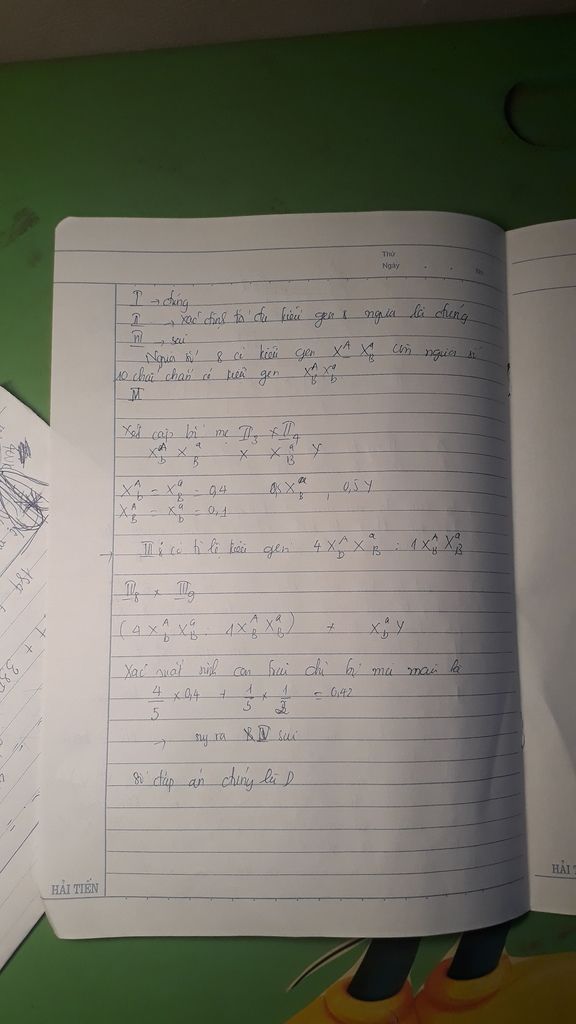 Thứ
Ngày
I → đúng
II → xác định tối đa kiểu gen 8 người là đúng
III → sai
Người số 8 có kiểu gen X^A X^a_B còn người số
10 chắc chắn có kiểu gen X^A_B X^a_b
IV
Xét cặp bố mẹ II3 × II4
X^A_b X^a_B × X^a_B Y
X^A_b = X^a_B = 0,4 0,5 X^a_B , 0,5 Y
X^A_B = X^a_b = 0,1
→ III8 có tỉ lệ kiểu gen 4 X^A_b X^a_B : 1 X^A_B X^a_B
III8 × III9
(4 X^A_b X^a_B : 1 X^A_B X^a_B) × X^a_b Y
Xác suất sinh con trai chỉ bị mù màu là
4/5 × 0,4 + 1/5 × 1/2 = 0,42
→ suy ra IV sai
số đáp án chúng là D
HẢI TIẾN
HẢI T